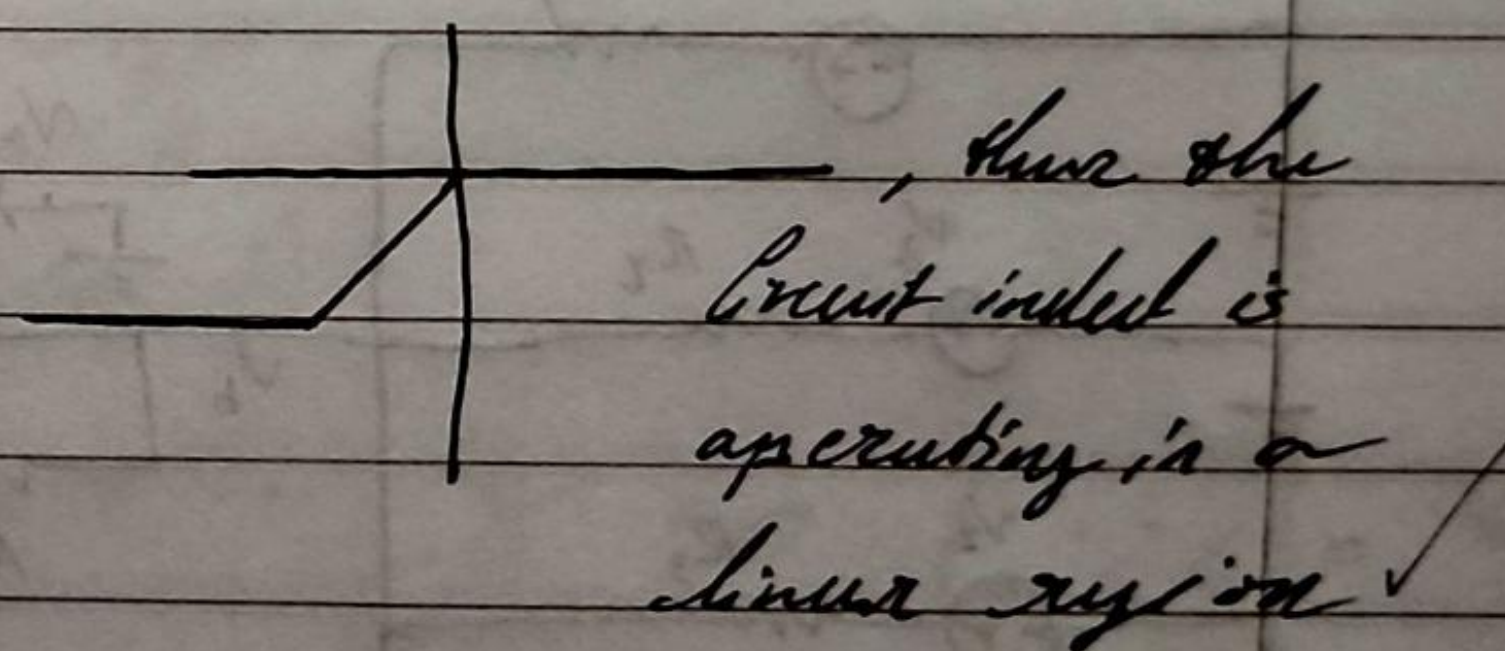 , thus the
Circuit indeed is
operating in a
linear region